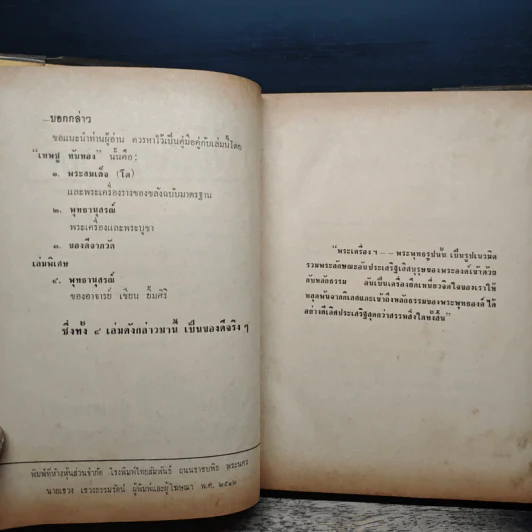 _บอกกล่าว
ขอแนะนำท่านผู้อ่าน ควรหาไว้เป็นคู่มือคู่กับเล่มนี้โดย
"เทพชู ทับทอง" นั้นคือ;
๑. พระสมเด็จ (โต)
และพระเครื่องรางของขลังฉบับมาตรฐาน
๒. พุทธานุสรณ์
พระเครื่องและพระบูชา
๓. ของดีจากวัด
เล่มพิเศษ
๔. พุทธานุสรณ์
ของอาจารย์ เขียน ยิ้มศิริ
ซึ่งทั้ง ๔ เล่มดังกล่าวมานี้ เป็นของดีจริง ๆ
พิมพ์ที่ห้างหุ้นส่วนจำกัด โรงพิมพ์ไทยสัมพันธ์ ถนนราชบพิธ พระนคร
นายเชวง เชวงธรรมรัตน์ ผู้พิมพ์และผู้โฆษณา พ.ศ. ๒๕๑๒
"พระเครื่อง ฯ -- พระพุทธรูปนั้น เป็นรูปเนรมิต
รวมพระลักษณะอันประเสริฐเลิศบุรุษของพระองค์เข้าด้วย
กับหลักธรรม อันเป็นเครื่องยึดเหนี่ยวจิตใจของเราให้
หลุดพ้นจากกิเลสและเข้าถึงหลักธรรมของพระพุทธองค์ ได้
อย่างดีเลิศประเสริฐสุดกว่าสรรพสิ่งใดทั้งสิ้น"